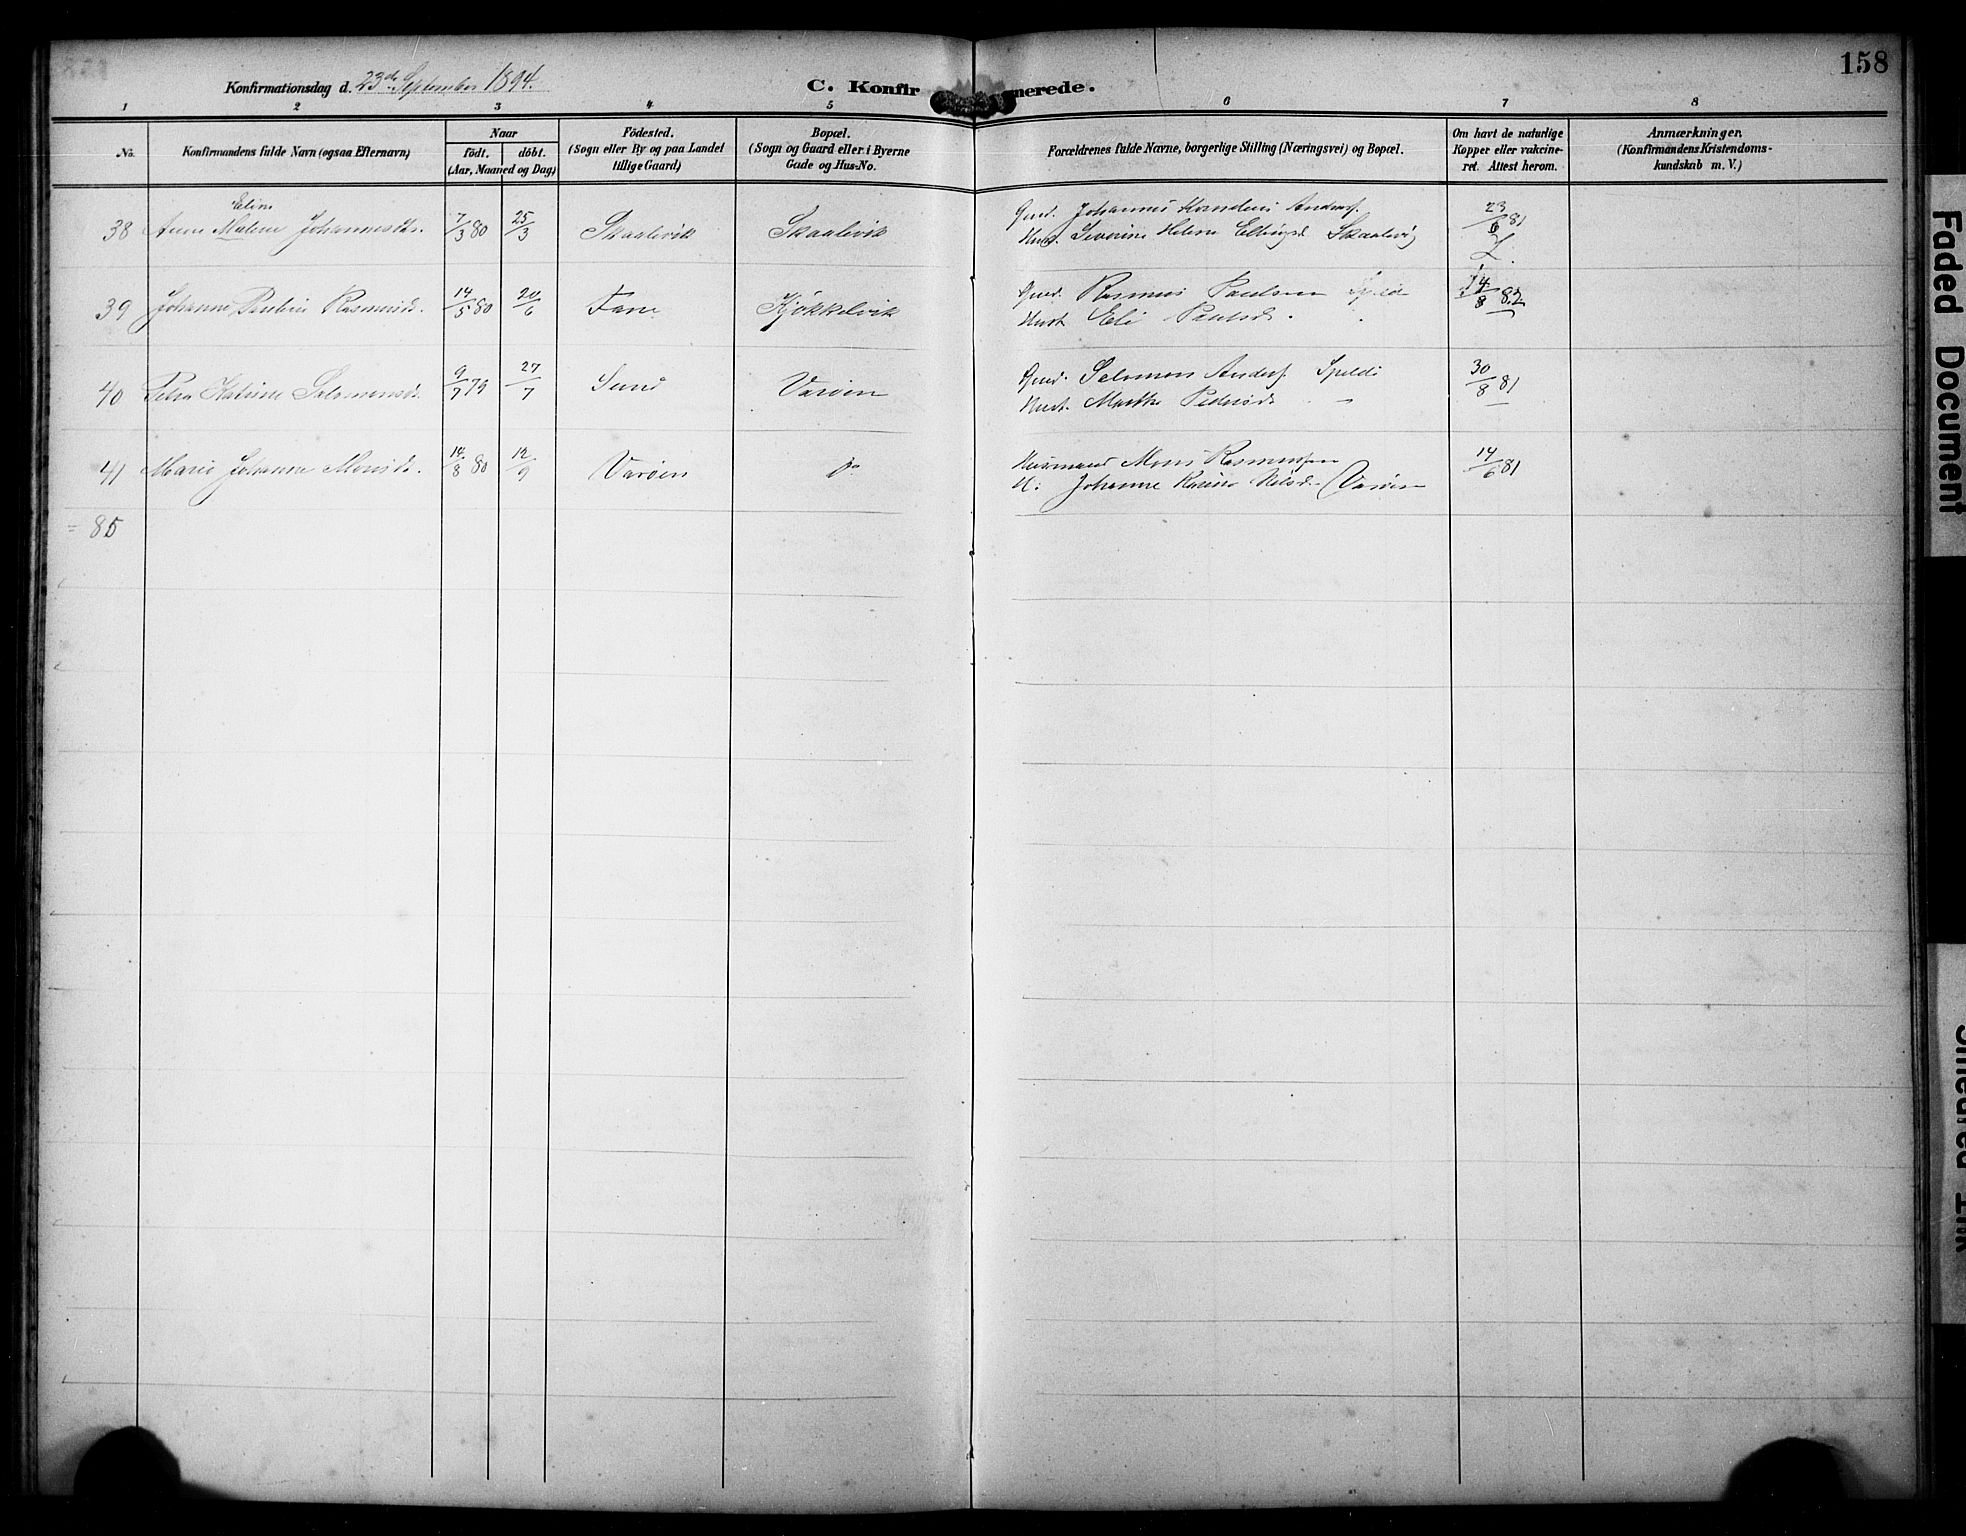 158
Konfirmationsdag d. 23de September 1894.
C. Konfirmerede.
1 2 3 4 5 6 7 8
No.
Konfirmandens fulde Navn (ogsaa Efternavn)
Naar
födt. döbt.
(Aar, Maaned og Dag)
Födested.
(Sogn eller By og paa Landet
tillige Gaard)
Bopæl.
(Sogn og Gaard eller i Byerne
Gade og Hus-No.
Forældrenes fulde Navne, borgerlige Stilling (Næringsvei) og Bopæl.
Om havt de naturlige
Kopper eller vakcine-
ret. Attest herom.
Anmærkninger.
(Konfirmandens Kristendoms-
kundskab m. V.)
Eline
38 Anne Malene Johannesdr. 7/3 80 25/3 Skaalevik Skaalevik Gmd. Johannes Anders. 23/6 81
Hust. Severine Helene Skaalevig
39 Johanne Pauline Rasmusd. 14/5 80 20/6 Fane Kjøkkelvik Gmd. Rasmus Paulsen 14/8 82
Hust. Eli Paulsd.
40 Petra Katrine Salomonsd. 9/7 79 27/7 Sund Varøen Gmd. Salomon Anders. Spilde 30/8 81
Hust. Marthe Pedersd. "
41 Marie Johanne Monsd. 14/8 80 12/9 Varøen do Husmand Mons Rasmussen 14/6 81
H: Johanne Karine Nilsd. Varøen
= 85
Faded Document
Smeared Ink